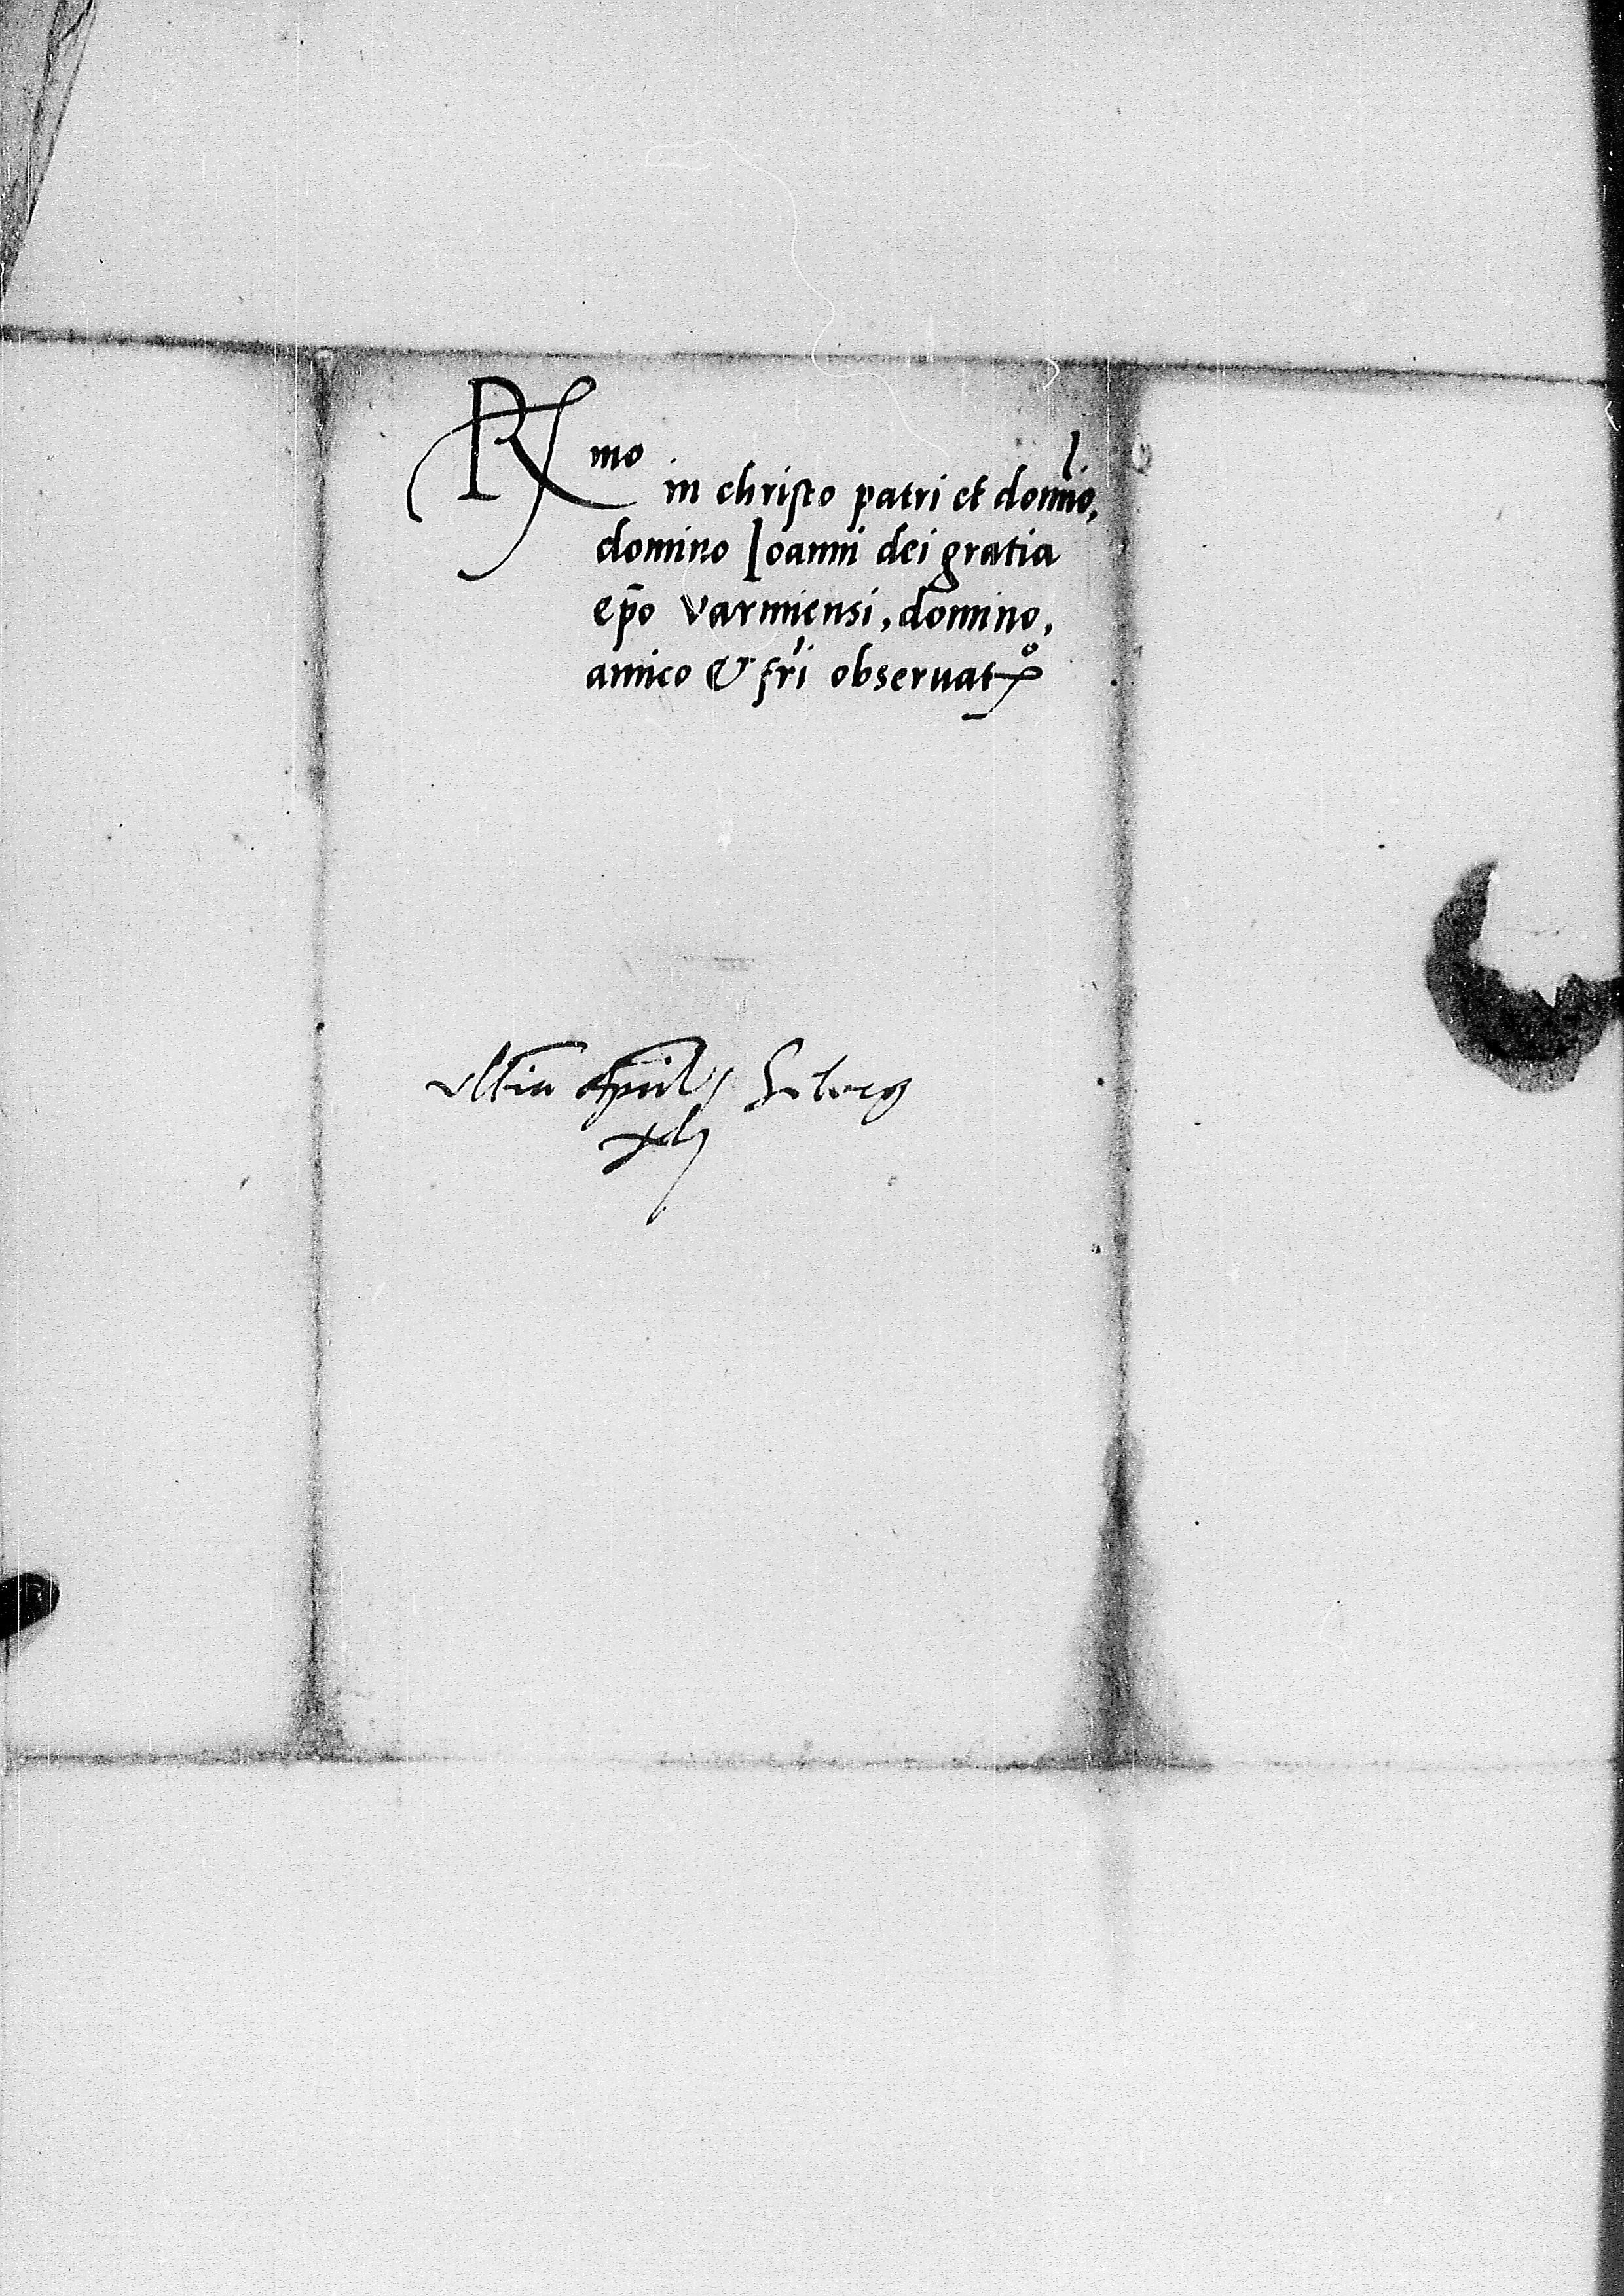 Rmo in christo patri et domino,
domino Ioanni dei gratia
epo varmiensi, domino,
amico & fri observat
ultia Aprilis